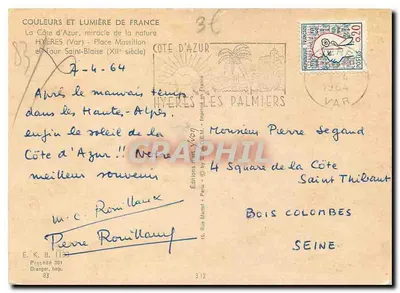 COULEURS ET LUMIÈRE DE FRANCE
La Côte d'Azur, miracle de la nature
HYÈRES (Var) - Place Massillon
et Tour Saint-Blaise (XIIe siècle)
83
3€
7-4-64
Après le mauvais temps
dans les Hautes-Alpes,
enfin le soleil de la
Côte d'Azur !! Notre
meilleur souvenir
M.C. Rouillaux
Pierre Rouillaux
E. K. B.
Procédé 301
Draeger, imp.
83
Editions d'art Yvon
15, Rue Martel - Paris
312
COTE D'AZUR
HYERES LES PALMIERS
1964
VAR
REPUBLIQUE FRANCAISE
0,20
POSTES
CPAPHIL
Monsieur Pierre Segaud
4 Square de la Côte
Saint Thibaut
BOIS COLOMBES
SEINE